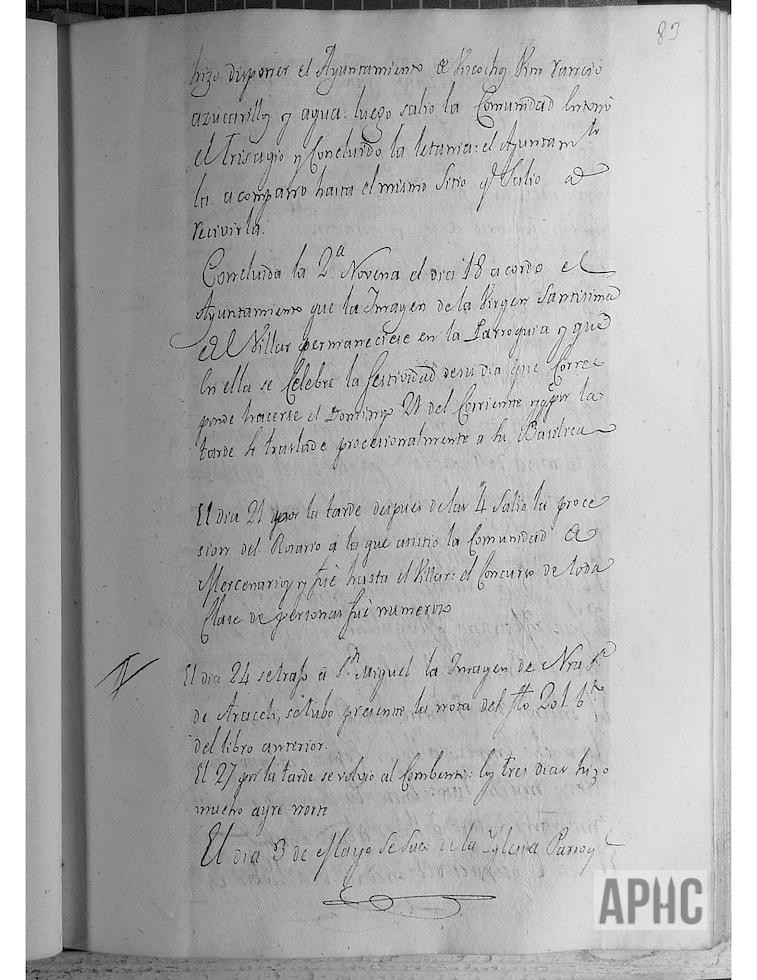 83
hizo disponer el Ayuntamiento de Vicochos Vino rancio
azucarillos y agua: luego salio la Comunidad entonó
el Trisagio y Concluido la letania: el Ayuntam.to
la acompaño hasta el mismo Sitio q.e Salio a
recivirla.
Concluida la 2.a Novena el dia 18 acordo el
Ayuntamiento que la Imagen de la Virgen Santisima
del Villar permaneciese en la Parroquia y que
en ella se Celebre la festividad de su dia que Corres
ponde hacerse el Domingo 21 del Corriente y q.e por la
tarde se traslade procesionalmente a su Basilica
El dia 21 por la tarde despues de las 4 Salio la proce
sion del Rosario a la que asistio la Comunidad de
Mercenarios y fué hasta el Villar: el Concurso de toda
Clase de personas fué numeroso
El dia 24 se trajo a S.n Miguel la Imagen de Nra S.a
de Araceli, se tubo presente la nota del flo 201 b.ta
del libro anterior.
El 27 por la tarde se volvio al Combento: los tres dias hizo
mucho ayre norte
El dia 3 de Mayo se Saco de la Yglesia Parroq.l
APHC